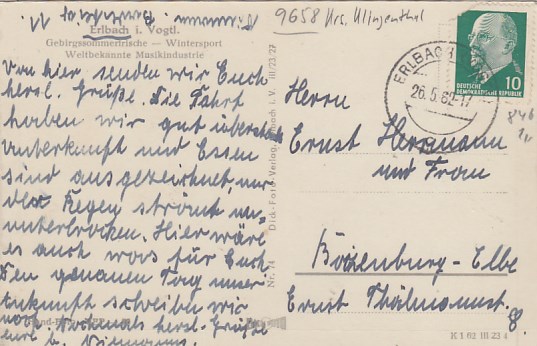 9658 Krs. Klingenthal
Erlbach i. Vogtl.
Gebirgssommerfrische — Wintersport
Weltbekannte Musikindustrie
Von hier senden wir Euch
herzl. Grüße. Die Fahrt
haben wir gut
Unterkunft und Essen
sind ausgezeichnet, nur
der Regen strömt un-
unterbrochen. Hier wäre
es auch was für Euch
Den genauen Tag unser
Ankunft schreiben wir
noch. Nochmals herzl. Grüße
III/23/27
Nr. 74
ERLBACH
26.5.62-17
DEUTSCHE
DEMOKRATISCHE REPUBLIK
10
Herrn
Ernst Herrmann
und Frau
Boizenburg-Elbe
Ernst Thälmannst. 8.
K 1 62 III 23 4